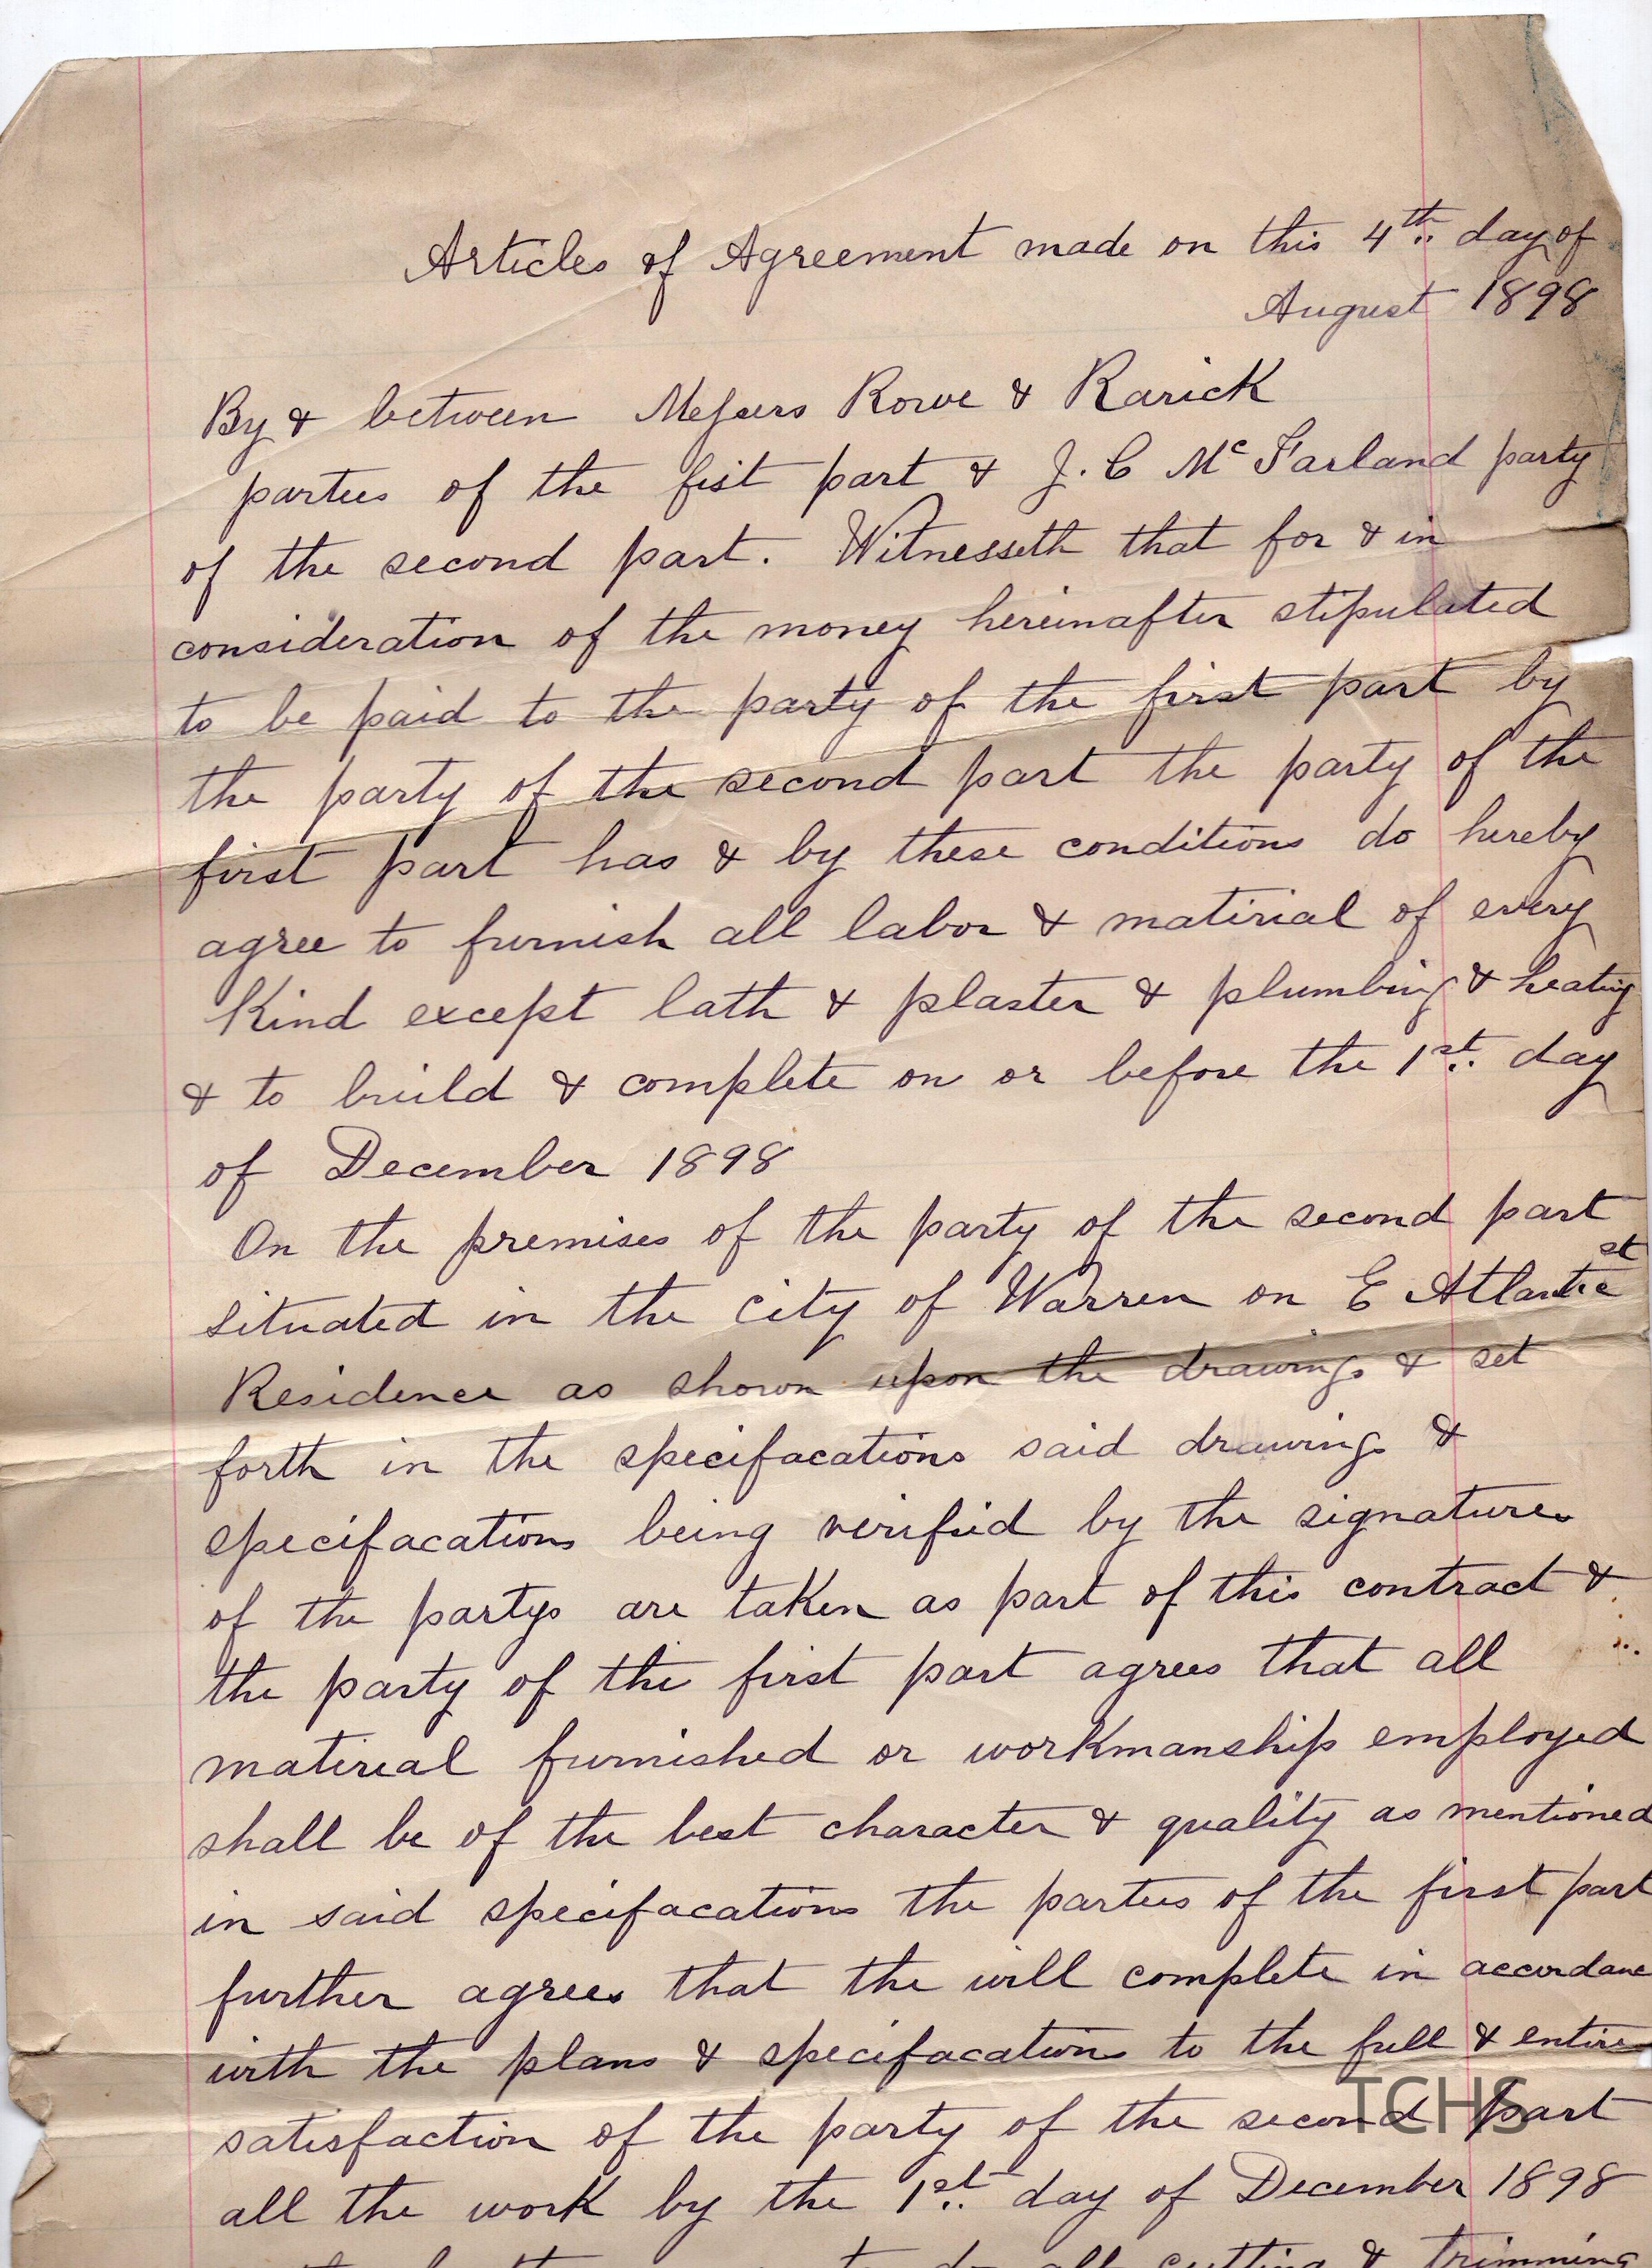 Articles of Agreement made on this 4th day of
August 1898
By & between Messers Rowe & Rarick
parties of the fist part & J. C McFarland party
of the second part. Witnesseth that for & in
consideration of the money hereinafter stipulated
to be paid to the party of the first part by
the party of the second part the party of the
first part has & by these conditions do hereby
agree to furnish all labor & matirial of every
Kind except lath & plaster & plumbing & heating
& to build & complete on or before the 1st. day
of December 1898
On the premises of the party of the second part
situated in the city of Warren on E Atlantic st
Residence as shown upon the drawings & set
forth in the specifacations said drawings &
specifacations being verified by the signatures
of the partys are taken as part of this contract &
the party of the first part agrees that all
matirial furnished or workmanship employed
shall be of the best character & quality as mentioned
in said specifacations the parties of the first part
further agrees that the will complete in accordance
with the plans & specifacations to the full & entire
satisfaction of the party of the second part
TCHS
all the work by the 1st. day of December 1898
to do all cutting & trimming